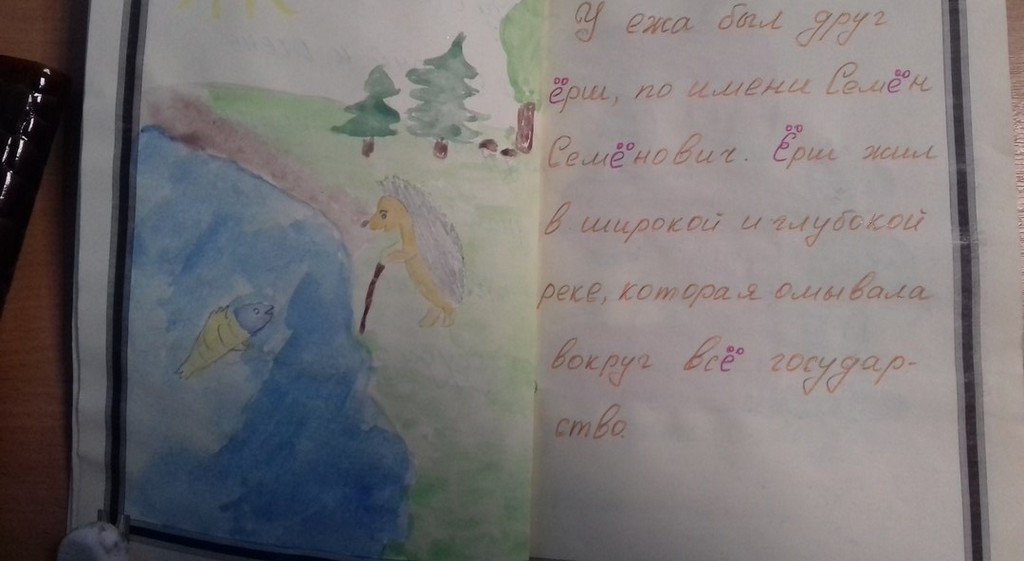 У ежа был друг
ёрш, по имени Семён
Семёнович. Ёрш жил
в широкой и глубокой
реке, которая омывала
вокруг всё государ-
ство.